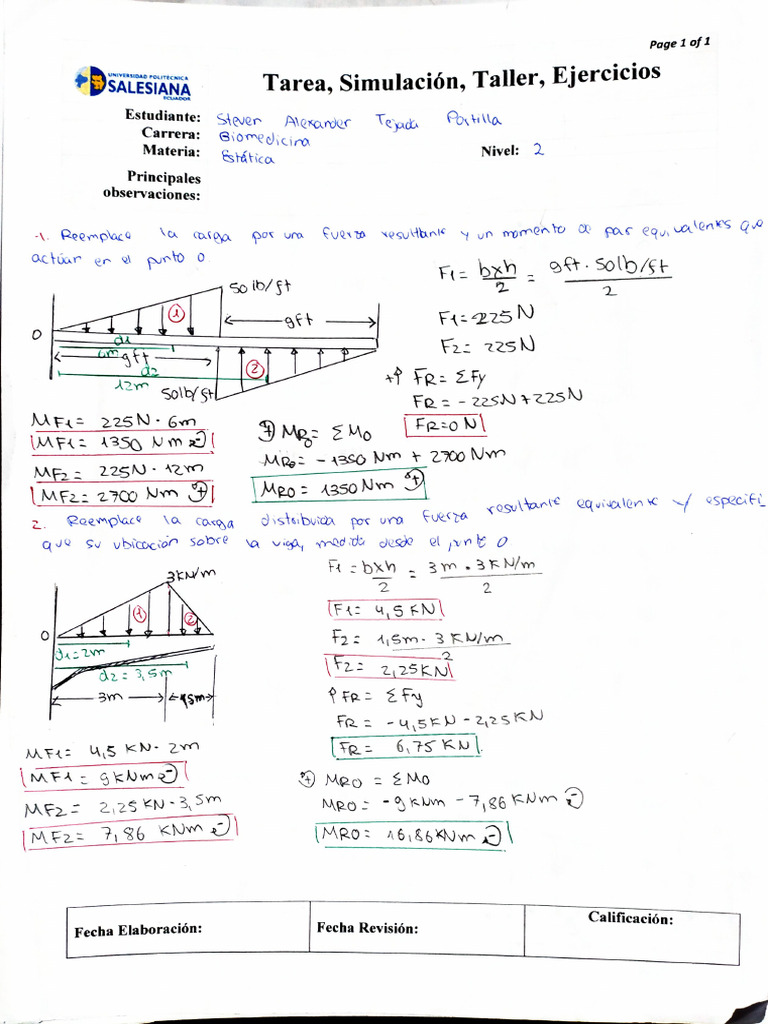 Page 1 of 1
UNIVERSIDAD POLITÉCNICA
SALESIANA
ECUADOR
Tarea, Simulación, Taller, Ejercicios
Estudiante: Steven Alexander Tejada Portilla
Carrera: Biomedicina
Materia: Estática
Nivel: 2
Principales
observaciones:
1. Reemplace la carga por una fuerza resultante y un momento de par equivalentes que
actúar en el punto O
50 lb/ft
①
9ft
O
d1
6m
9ft
d2
②
12m
50lb/ft
F1 = bxh/2 = 9ft · 50lb/ft / 2
F1 = 225N
F2 = 225N
+↑ FR = ΣFy
FR = -225N + 225N
FR = 0 N
MF1 = 225N · 6m
MF1 = 1350 Nm ⊖
MF2 = 225N · 12m
MF2 = 2700 Nm ⊕
⊕ MRo = ΣMo
MRo = -1350 Nm + 2700 Nm
MRO = 1350 Nm ⊕
2. Reemplace la carga distribuida por una fuerza resultante equivalente y especifi
que su ubicación sobre la viga, medida desde el punto O
3KN/m
①
②
O
d1=2m
d2=3,5m
3m
1,5m
F1 = bxh/2 = 3m · 3KN/m / 2
F1 = 4,5 KN
F2 = 1,5m · 3 KN/m / 2
F2 = 2,25KN
↑ FR = ΣFy
FR = -4,5KN - 2,25KN
FR = 6,75 KN
MF1 = 4,5 KN · 2m
MF1 = 9KNm ⊖
MF2 = 2,25KN · 3,5m
MF2 = 7,86 KNm ⊖
⊕ MRO = ΣMO
MRO = -9KNm - 7,86KNm ⊖
MRO = 16,86KNm ⊖
Fecha Elaboración:
Fecha Revisión:
Calificación: